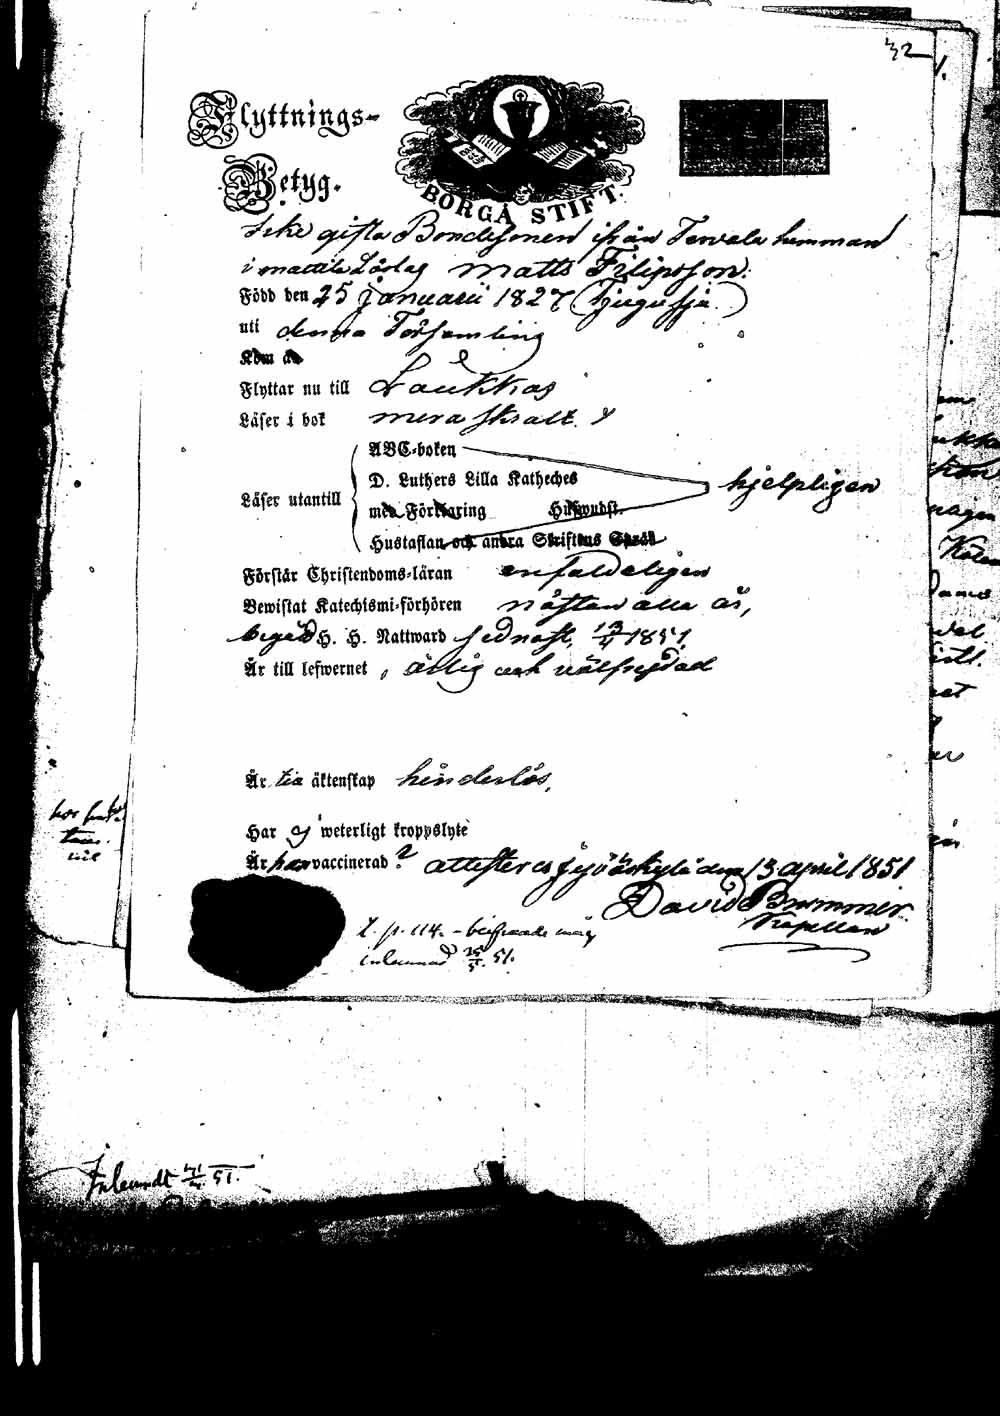 32
Flyttnings-
Betyg.
BORGÅ STIFT.
Icke gifta Bondesonen ifrån Tervala hemman
i mattila Låslag Matts Filipsson.
Född den 25 januarii 1827 (Tjugusju)
uti denna Församling
Kom
Flyttar nu till Laukkas
Läser i bok mera skralt
ABC-boken
D. Luthers Lilla Katheches
Läser utantill hjelpligen
med Förklaring Huswudst.
Hustaflan och andra Skriftens Språk
Förstår Christendoms-läran enfaldeligen
Bewistat Katechismi-förhören nästan alla år,
begått H. H. Nattward sednast, 13/4 1851,
Är till lefwernet, ärlig och välfrejdad
Är till äktenskap hinderlös,
Har ej weterligt kroppslyte
Är har vaccinerad? attesteras Jyväskylä den 13 april 1851
David Brummer
Kapellan
p. 114.
51.
51.